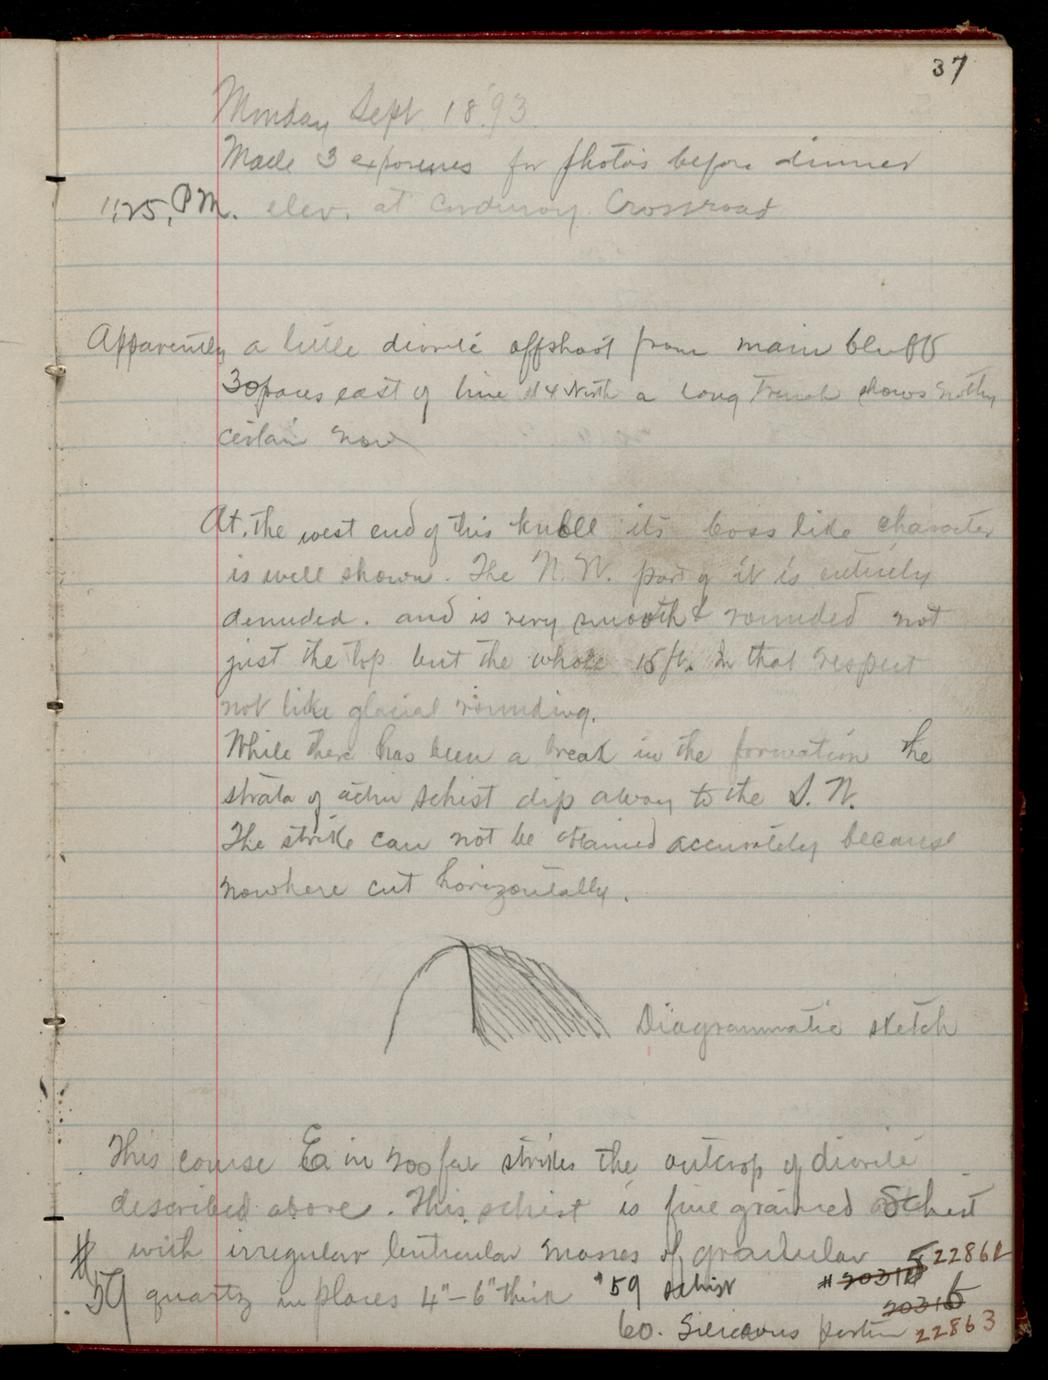 37
Monday Sept 18 '93
Made 3 exposures for photos before dinner
1:25, P.M. elev. at Corduroy Crossroad
Apparently a little diorite offshoot from main bluff
30 paces east of line North a long Trench shows nothing
certain now
At, the west end of this knoll its boss like character
is well shown. The N. W. part of it is entirely
denuded. and is very smooth & rounded not
just the top but the whole 15 ft. In that respect
not like glacial rounding.
While there has been a break in the formation the
strata of actin schist dip away to the S. W.
The strike can not be obtained accurately because
nowhere cut horizontally.
Diagrammatic sketch
This course E in 200 feet strikes the outcrop of diorite
described above. This schist is fine grained schist
# with irregular lenticular masses of granular 22862
59 quartz in places 4"-6" thick #59 schist # 20314
20316
60. Silicious portion 22863